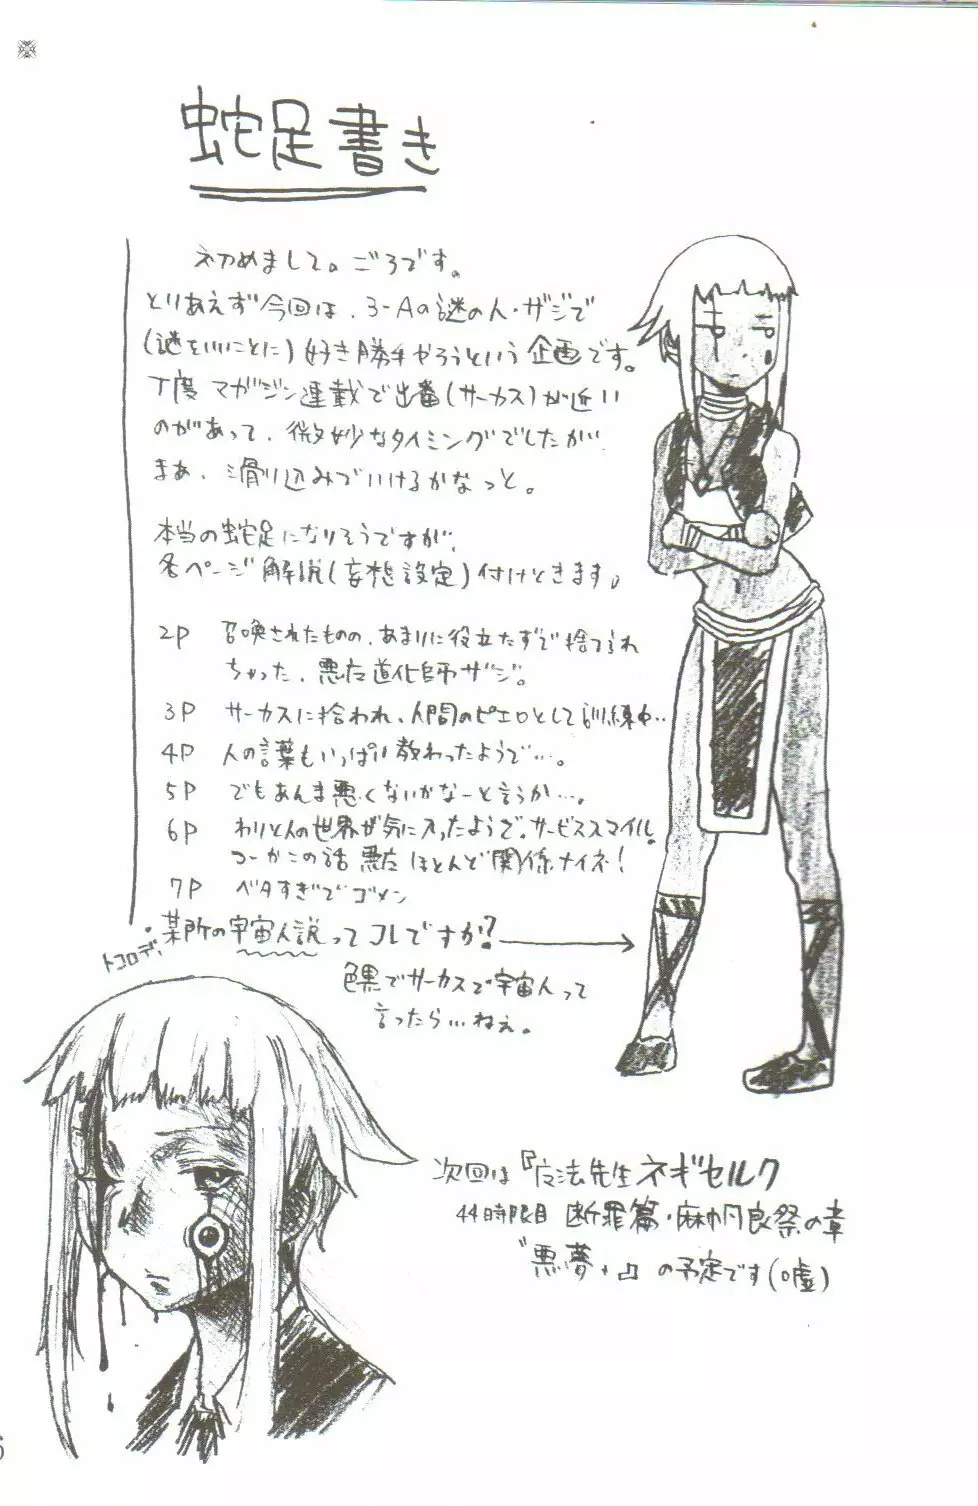 蛇足書き
初めまして。ごろです。
とりあえず今回は、3-Aの謎の人・ザジで
(謎をいいことに)好き勝手やろうという企画です。
丁度マガジン連載で出番(サーカス)が近い
のがあって、微妙なタイミングでしたが、
まぁ、滑り込みでいけるかなっと。
本当の蛇足になりそうですが、
各ページ解説(妄想設定)付けときます。
2P 召喚されたものの、あまりに役立たずで捨てられ
ちゃった、悪魔道化師ザジ。
3P サーカスに拾われ、人間のピエロとして訓練中‥
4P 人の言葉もいっぱい教わったようで…。
5P でもあんま悪くないかなーと言うか…。
6P わりと人の世界が気に入ったようで、サービススマイル。
つーかこの話悪魔ほとんど関係ナイネ!
7P ベタすぎでゴメン
・某所の宇宙人説ってコレですか?
トコロデ、
色黒でサーカスで宇宙人って
言ったら…ねぇ。
次回は『魔法先生ネギセルク
44時限目 断罪篇・麻帆良祭の章
"悪夢"』の予定です(嘘)
6